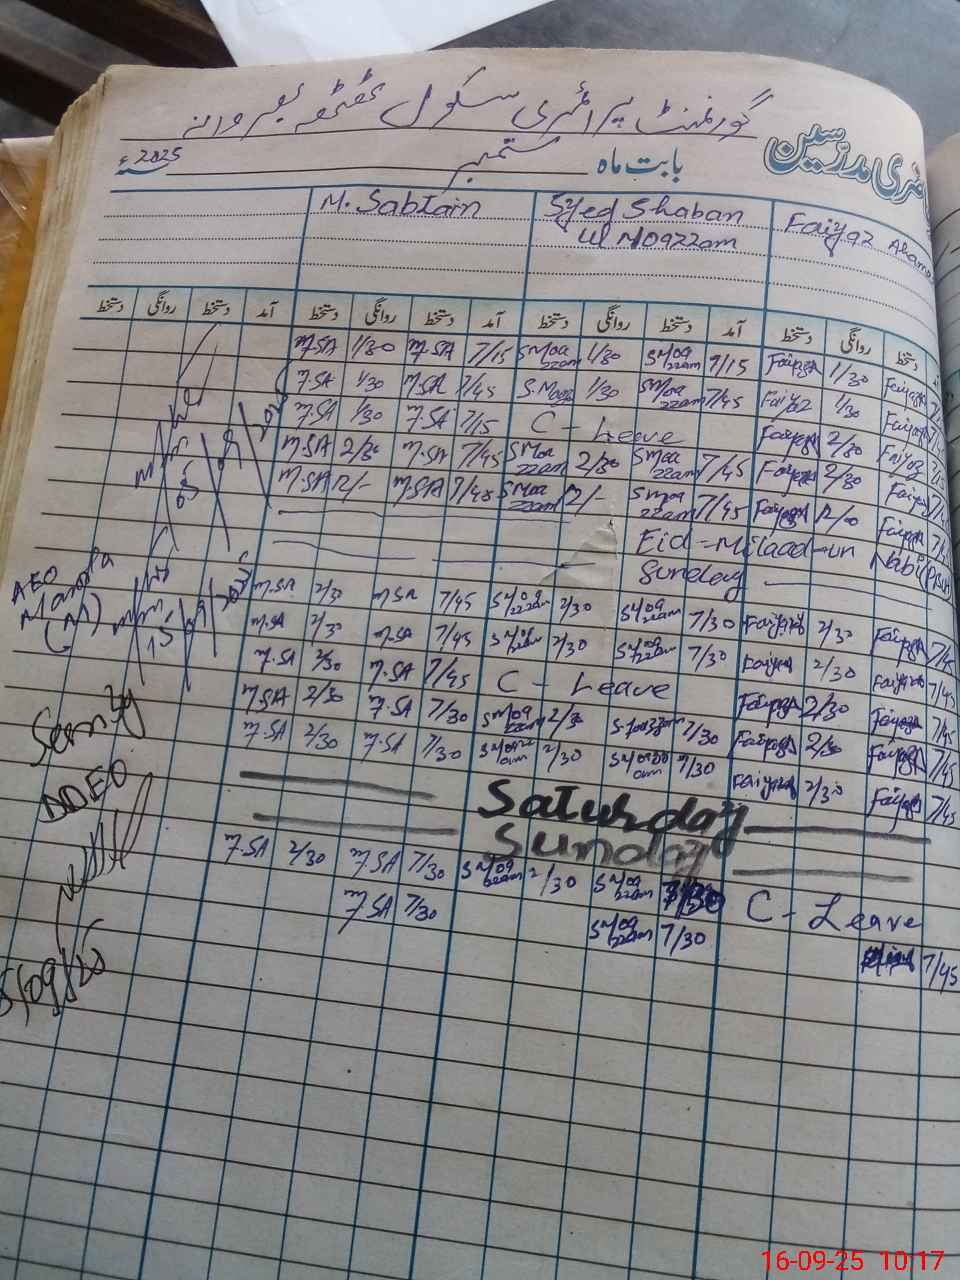 گورنمنٹ پرائمری سکول ٹھٹھہ
حاضری مدرسین
بابت ماہ ستمبر 2025ء
M. Sabtain Syed Shaban Faiyaz Ahamad
Ul Moazzam
آمد دستخط روانگی دستخط آمد دستخط روانگی دستخط آمد دستخط روانگی دستخط
M.SA 1/30 M.SA 7/15 SMoazzam 1/30 SMoazzam 7/15 Faiyaz 1/30 Faiyaz
M.SA 1/30 M.SA 7/45 S.Moaz 1/30 SMoazzam 7/45 Faiyaz 1/30 Faiyaz
M.SA 1/30 M.SA 7/15 C - Leave Faiyaz 2/30 Faiyaz
M.SA 2/30 M.SA 7/45 SMoazzam 2/30 SMoazzam 7/45 Faiyaz 2/30 Faiyaz
M.SA 12/- M.SA 7/45 SMoazzam 12/- SMoazzam 7/45 Faiyaz 12/00 Faiyaz
Eid-Milaad-un Nabi
Sunday
M.SA 2/30 M.SA 7/45 SMoazzam 2/30 SMoazzam 7/30 Faiyaz 2/30 Faiyaz 7/45
M.SA 2/30 M.SA 7/45 SMoazzam 2/30 SMoazzam 7/30 Faiyaz 2/30 Faiyaz 7/45
M.SA 2/30 M.SA 7/45 C - Leave Faiyaz 2/30 Faiyaz 7/45
M.SA 2/30 M.SA 7/30 SMoazzam 2/30 SMoazzam 7/30 Faiyaz 2/30 Faiyaz 7/45
M.SA 2/30 M.SA 7/30 SMoazzam 2/30 SMoazzam 7/30 Faiyaz 2/30 Faiyaz 7/45
Saturday
Sunday
M.SA 2/30 M.SA 7/30 SMoazzam 2/30 SMoazzam 7/30 C - Leave
M.SA 7/30 SMoazzam 7/30 7/45
AEO
(M)
DDEO
16-09-25 10:17